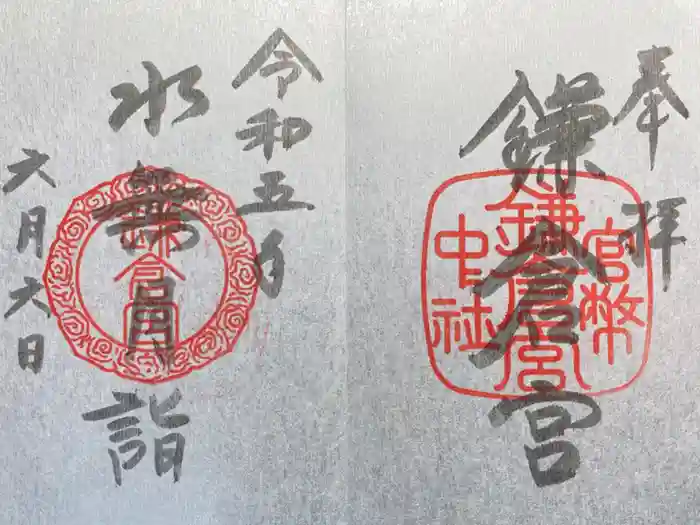 奉拝
官幣
鎌倉宮
鎌倉宮
中社
令和五年
水無月詣
鎌倉宮
六月六日